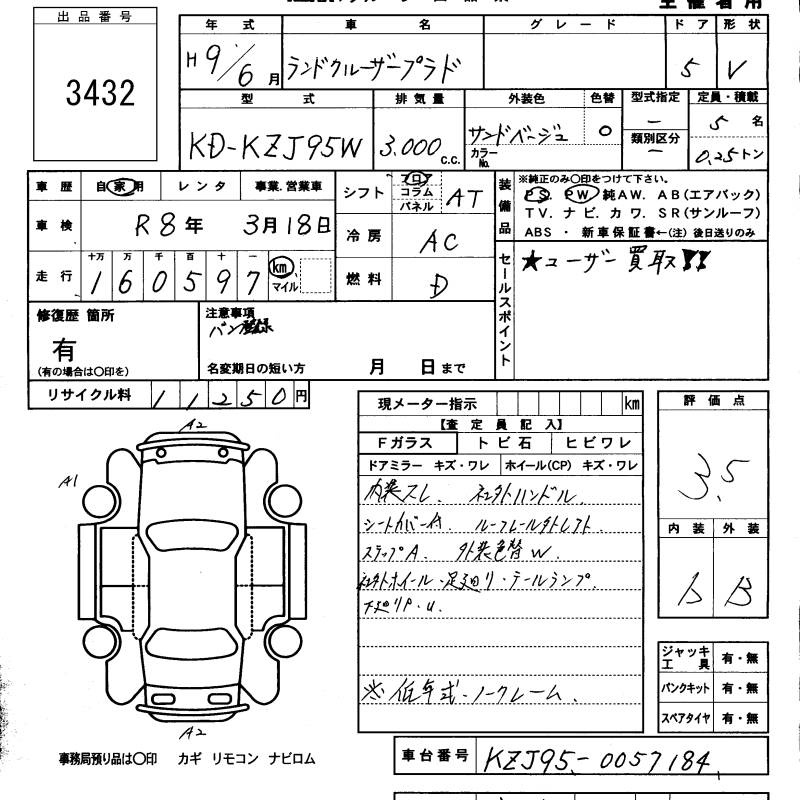 出品番号
3432
年 式 車 名 グレード ドア 形状
H 9/6月 ランドクルーザープラド 5 V
型 式 排気量 外装色 色替 型式指定 定員・積載
KD-KZJ95W 3,000 c.c. サンドベージュ カラーNo. 0 - 5 名
類別区分 - 0.25トン
車歴 自家用 レンタ 事業.営業車
車検 R8年 3月18日
走行 十万 万 千 百 十 一
160597 km マイル
シフト フロア コラム パネル AT
冷房 AC
燃料 D
装備品 ※純正のみ〇印をつけて下さい。
PS. PW. 純AW. AB(エアバック)
TV. ナビ. カワ. SR(サンルーフ)
ABS ・ 新車保証書←(注)後日送りのみ
セールスポイント ★ユーザー買取!!
修復歴 箇所
有
(有の場合は〇印を)
注意事項
バン登録
名変期日の短い方 月 日まで
リサイクル料 11250円
現メーター指示 km
【査定員記入】
Fガラス トビ石 ヒビワレ
ドアミラー キズ・ワレ ホイール(CP) キズ・ワレ
内装スレ. 社外ハンドル.
シートカバー付. ルーフレール外レスト.
ステップA. 外装色替W.
社外ホイール・足廻り・テールランプ.
下廻りP・U.
※低年式・ノークレーム.
評価点
3.5
内装 外装
b B
A2
A1
A2
ジャッキ工具 有・無
パンクキット 有・無
スペアタイヤ 有・無
事務局預り品は〇印 カギ リモコン ナビロム
車台番号 KZJ95-0057184